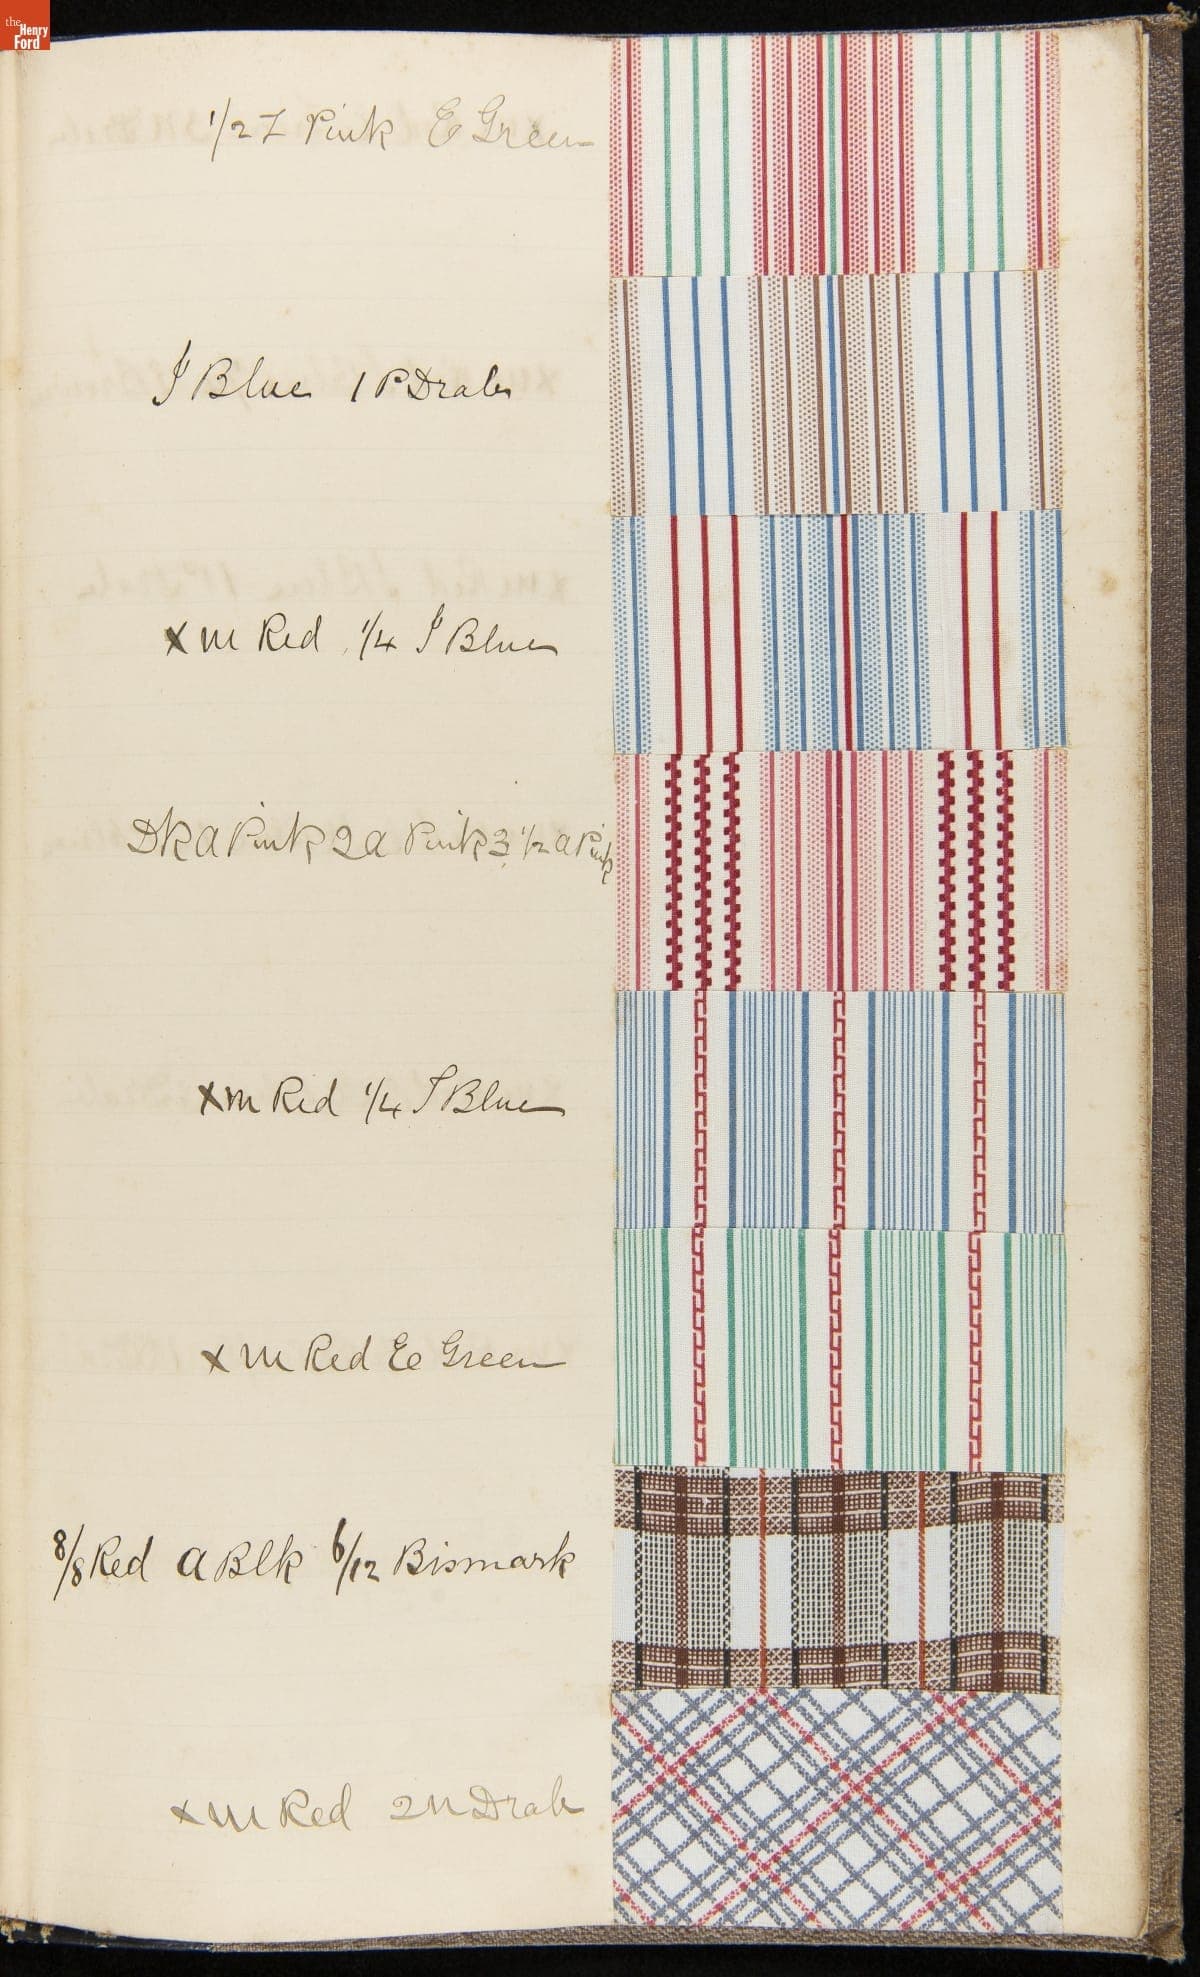 the
Henry
Ford
1/2 Z Pink E Green
J Blue 1 P Drab
x m Red 1/4 J Blue
Dk a Pink 2 a Pink 3 1/2 a Pink
x m Red 1/4 J Blue
x m Red E Green
8/8 Red a Blk 6/12 Bismark
x m Red 2 N Drab